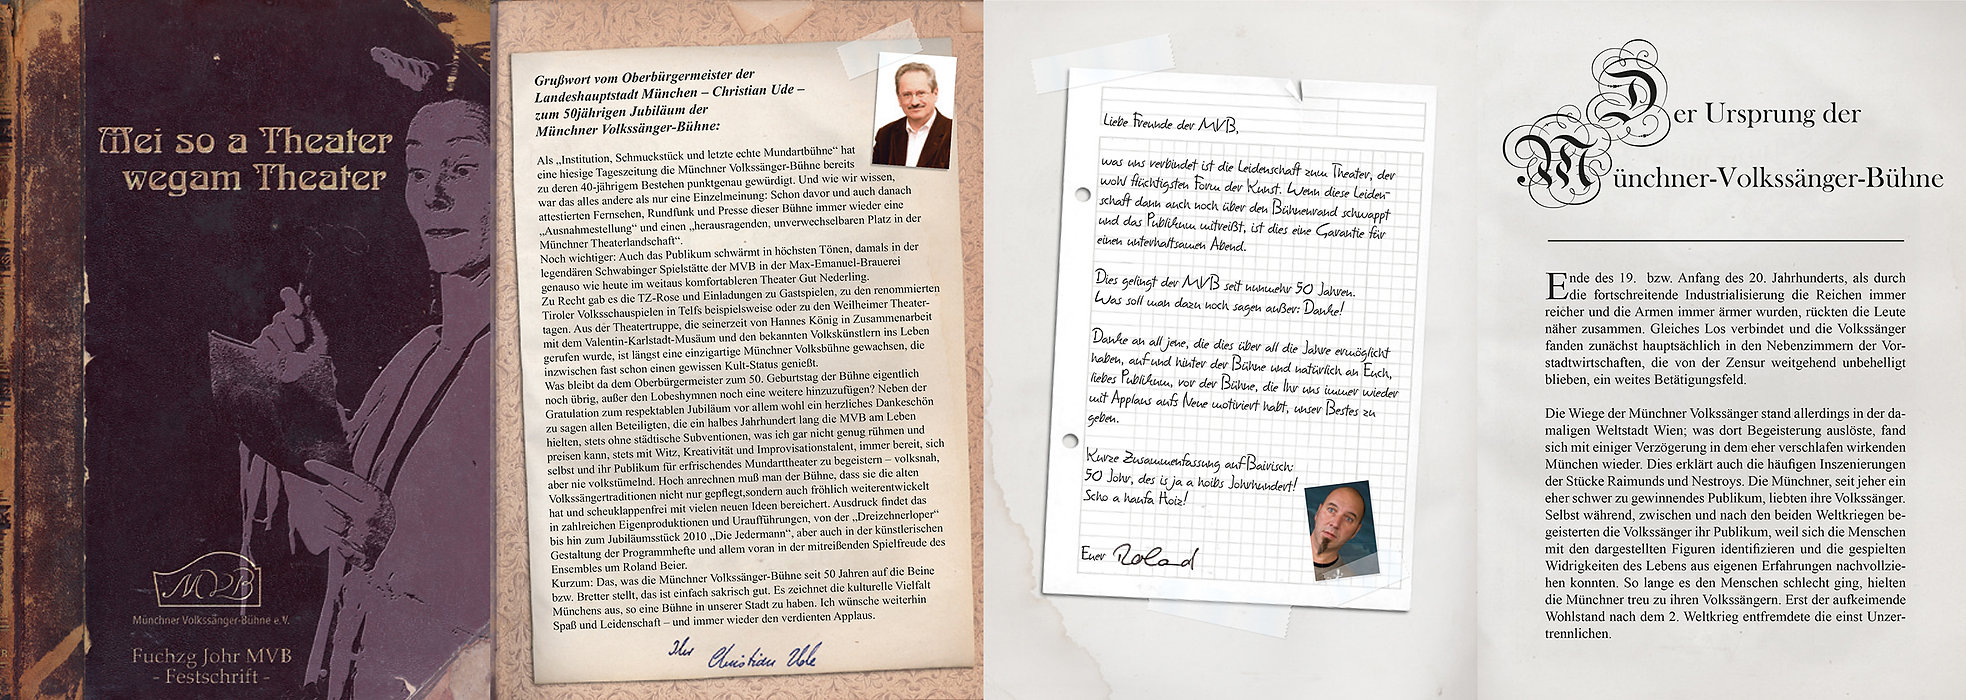 Mei so a Theater
wegam Theater
MVB
Münchner Volkssänger-Bühne e.V.
Fuchzg Johr MVB
- Festschrift -
Grußwort vom Oberbürgermeister der
Landeshauptstadt München – Christian Ude –
zum 50jährigen Jubiläum der
Münchner Volkssänger-Bühne:
Als „Institution, Schmuckstück und letzte echte Mundartbühne“ hat
eine hiesige Tageszeitung die Münchner Volkssänger-Bühne bereits
zu deren 40-jährigem Bestehen punktgenau gewürdigt. Und wie wir wissen,
war das alles andere als nur eine Einzelmeinung: Schon davor und auch danach
attestierten Fernsehen, Rundfunk und Presse dieser Bühne immer wieder eine
„Ausnahmestellung“ und einen „herausragenden, unverwechselbaren Platz in der
Münchner Theaterlandschaft“.
Noch wichtiger: Auch das Publikum schwärmt in höchsten Tönen, damals in der
legendären Schwabinger Spielstätte der MVB in der Max-Emanuel-Brauerei
genauso wie heute im weitaus komfortableren Theater Gut Nederling.
Zu Recht gab es die TZ-Rose und Einladungen zu Gastspielen, zu den renommierten
Tiroler Volksschauspielen in Telfs beispielsweise oder zu den Weilheimer Theater-
tagen. Aus der Theatertruppe, die seinerzeit von Hannes König in Zusammenarbeit
mit dem Valentin-Karlstadt-Musäum und den bekannten Volkskünstlern ins Leben
gerufen wurde, ist längst eine einzigartige Münchner Volksbühne gewachsen, die
inzwischen fast schon einen gewissen Kult-Status genießt.
Was bleibt da dem Oberbürgermeister zum 50. Geburtstag der Bühne eigentlich
noch übrig, außer den Lobeshymnen noch eine weitere hinzuzufügen? Neben der
Gratulation zum respektablen Jubiläum vor allem wohl ein herzliches Dankeschön
zu sagen allen Beteiligten, die ein halbes Jahrhundert lang die MVB am Leben
hielten, stets ohne städtische Subventionen, was ich gar nicht genug rühmen und
preisen kann, stets mit Witz, Kreativität und Improvisationstalent, immer bereit, sich
selbst und ihr Publikum für erfrischendes Mundarttheater zu begeistern – volksnah,
aber nie volkstümelnd. Hoch anrechnen muß man der Bühne, dass sie die alten
Volkssängertraditionen nicht nur gepflegt,sondern auch fröhlich weiterentwickelt
hat und scheuklappenfrei mit vielen neuen Ideen bereichert. Ausdruck findet das
in zahlreichen Eigenproduktionen und Uraufführungen, von der „Dreizehnerloper“
bis hin zum Jubiläumsstück 2010 „Die Jedermann“, aber auch in der künstlerischen
Gestaltung der Programmhefte und allem voran in der mitreißenden Spielfreude des
Ensembles um Roland Beier.
Kurzum: Das, was die Münchner Volkssänger-Bühne seit 50 Jahren auf die Beine
bzw. Bretter stellt, das ist einfach sakrisch gut. Es zeichnet die kulturelle Vielfalt
Münchens aus, so eine Bühne in unserer Stadt zu haben. Ich wünsche weiterhin
Spaß und Leidenschaft – und immer wieder den verdienten Applaus.
Ihr Christian Ude
Liebe Freunde der MVB,
was uns verbindet ist die Leidenschaft zum Theater, der
wohl flüchtigsten Form der Kunst. Wenn diese Leiden-
schaft dann auch noch über den Bühnenrand schwappt
und das Publikum mitreißt, ist dies eine Garantie für
einen unterhaltsamen Abend.
Dies gelingt der MVB seit nunmehr 50 Jahren.
Was soll man dazu noch sagen außer: Danke!
Danke an all jene, die dies über all die Jahre ermöglicht
haben, auf und hinter der Bühne und natürlich an Euch,
liebes Publikum, vor der Bühne, die Ihr uns immer wieder
mit Applaus aufs Neue motiviert habt, unser Bestes zu
geben.
Kurze Zusammenfassung auf Bairisch:
50 Johr, des is ja a hoibs Johrhundert!
Scho a haufa Hoiz!
Euer Roland
Der Ursprung der
Münchner-Volkssänger-Bühne
Ende des 19. bzw. Anfang des 20. Jahrhunderts, als durch
die fortschreitende Industrialisierung die Reichen immer
reicher und die Armen immer ärmer wurden, rückten die Leute
näher zusammen. Gleiches Los verbindet und die Volkssänger
fanden zunächst hauptsächlich in den Nebenzimmern der Vor-
stadtwirtschaften, die von der Zensur weitgehend unbehelligt
blieben, ein weites Betätigungsfeld.
Die Wiege der Münchner Volkssänger stand allerdings in der da-
maligen Weltstadt Wien; was dort Begeisterung auslöste, fand
sich mit einiger Verzögerung in dem eher verschlafen wirkenden
München wieder. Dies erklärt auch die häufigen Inszenierungen
der Stücke Raimunds und Nestroys. Die Münchner, seit jeher ein
eher schwer zu gewinnendes Publikum, liebten ihre Volkssänger.
Selbst während, zwischen und nach den beiden Weltkriegen be-
geisterten die Volkssänger ihr Publikum, weil sich die Menschen
mit den dargestellten Figuren identifizieren und die gespielten
Widrigkeiten des Lebens aus eigenen Erfahrungen nachvollzie-
hen konnten. So lange es den Menschen schlecht ging, hielten
die Münchner treu zu ihren Volkssängern. Erst der aufkeimende
Wohlstand nach dem 2. Weltkrieg entfremdete die einst Unzer-
trennlichen.